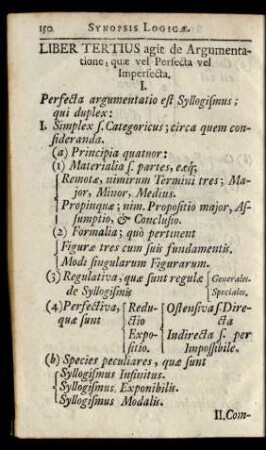 150 SYNOPSIS LOGICÆ.
LIBER TERTIUS agit de Argumenta-
tione, quæ vel Perfecta vel
Imperfecta.
I.
Perfecta argumentatio est Syllogismus;
qui duplex:
I. Simplex s. Categoricus; circa quem con-
sideranda.
(a) Principia quatuor:
(1) Materialia s. partes, eæq;
Remotæ, nimirum Termini tres; Ma-
jor, Minor, Medius.
Propinquæ; nim. Propositio major, As-
sumptio, & Conclusio.
(2) Formalia; quò pertinent
Figuræ tres cum suis fundamentis.
Modi singularum Figurarum.
(3) Regulativa, quæ sunt regulæ Generales.
de Syllogismis Speciales.
(4) Perfectiva, Redu- Ostensiva s. Dire-
quæ sunt ctio cta
Expo- Indirecta s. per
sitio. Impossibile.
(b) Species peculiares, quæ sunt
Syllogismus Infinitus.
Syllogismus Exponibilis.
Syllogismus Modalis.
II. Com-